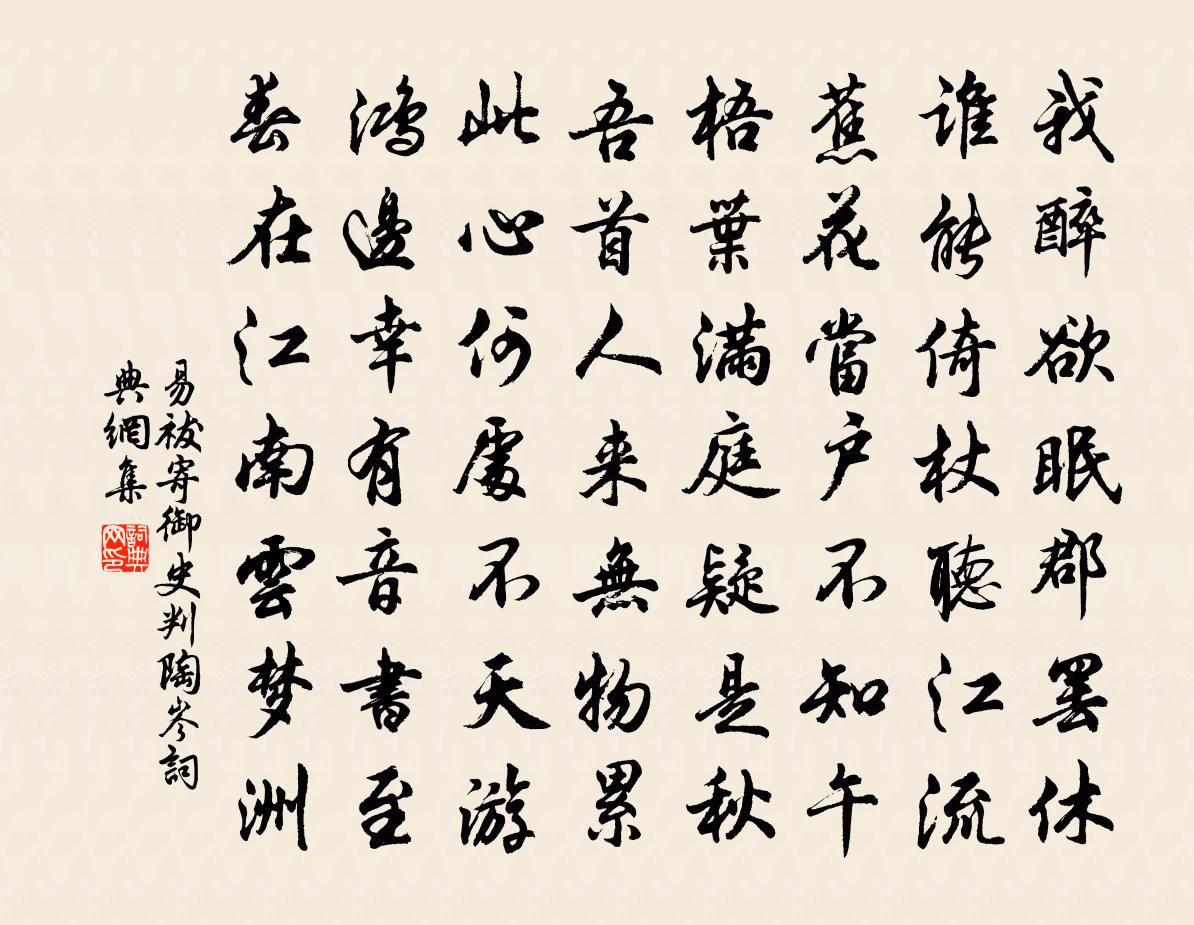 我醉欲眠郡罢休
谁能倚杖聽江流
蕉花當户不知午
梧葉滿庭疑是秋
吾首人来無物累
此心何處不天游
鴻邊幸有音書至
春在江南雲梦洲
易袚寄御史判陶岑詞
典網集
詞典网印